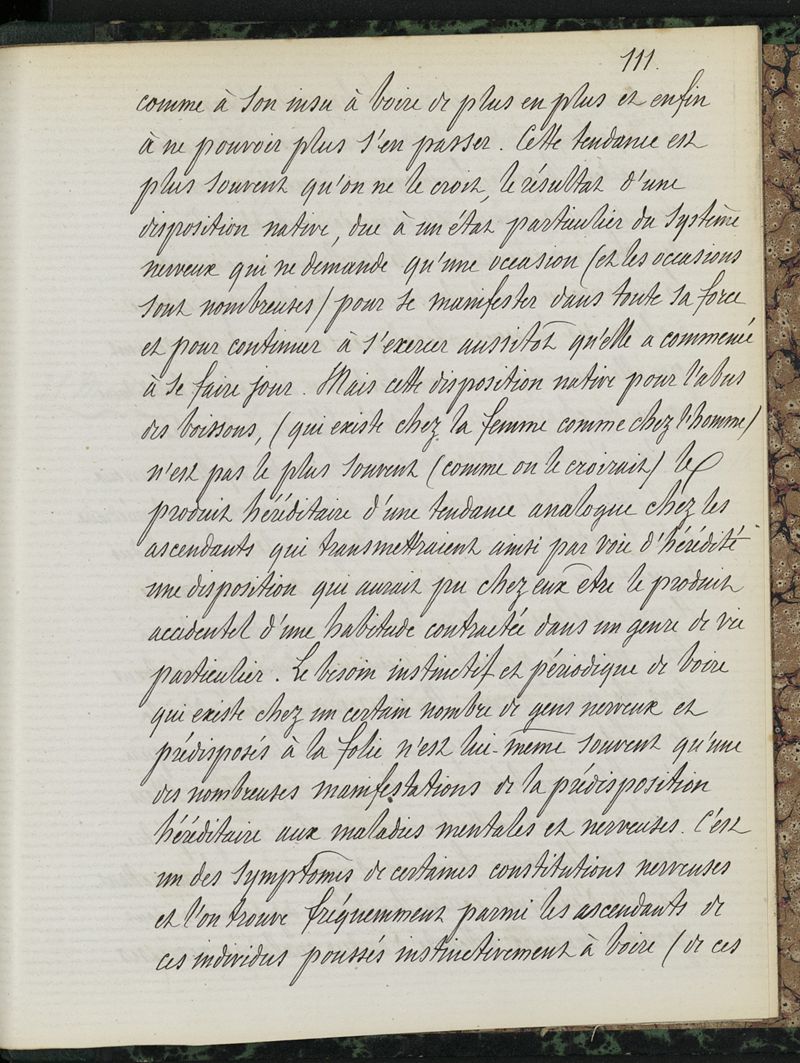 111.
comme à son insu à boire de plus en plus et enfin
à ne pouvoir plus s'en passer. Cette tendance est
plus souvent qu'on ne le croit, le résultat d'une
disposition native, due à un état particulier du système
nerveux qui ne demande qu'une occasion (et les occasions
sont nombreuses) pour se manifester dans toute sa force
et pour continuer à s'exercer aussitôt qu'elle a commencé
à se faire jour. Mais cette disposition native pour l'abus
des boissons, (qui existe chez la femme comme chez l'homme)
n'est pas le plus souvent (comme on le croirait) le
produit héréditaire d'une tendance analogue chez les
ascendants qui transmettraient ainsi par voie d'hérédité
une disposition qui aurait pu chez eux être le produit
accidentel d'une habitude contractée dans un genre de vie
particulier. Le besoin instinctif et périodique de boire
qui existe chez un certain nombre de gens nerveux et
prédisposés à la folie n'est lui-même souvent qu'une
des nombreuses manifestations de la prédisposition
héréditaire aux maladies mentales et nerveuses. C'est
un des symptômes de certaines constitutions nerveuses
et l'on trouve fréquemment parmi les ascendants de
ces individus poussés instinctivement à boire (de ces